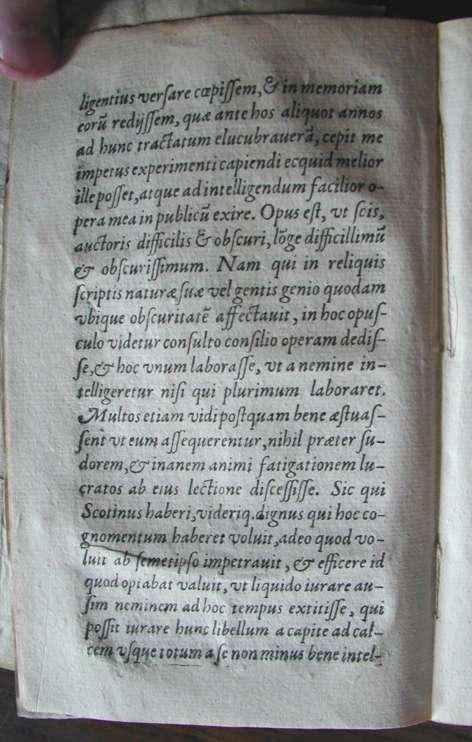 ligentius versare cœpissem, & in memoriam
eorū redijssem, quæ ante hos aliquot annos
ad hunc tractatum elucubraverā, cepit me
impetus experimenti capiendi ecquid melior
ille posset, atque ad intelligendum facilior o-
pera mea in publicū exire. Opus est, vt scis,
auctoris difficilis & obscuri, lōge difficillimū
& obscurissimum. Nam qui in reliquis
scriptis naturæ suæ vel gentis genio quodam
vbique obscuritatē affectauit, in hoc opus-
culo videtur consulto consilio operam dedis-
se, & hoc vnum laborasse, vt a nemine in-
telligeretur nisi qui plurimum laboraret.
Multos etiam vidi postquam bene æstuas-
sent vt eum assequerentur, nihil præter su-
dorem, & inanem animi fatigationem lu-
cratos ab eius lectione discessisse. Sic qui
Scotinus haberi, videriq. dignus qui hoc co-
gnomentum haberet voluit, adeo quod vo-
luit ab semetipso impetrauit, & efficere id
quod optabat valuit, vt liquido iurare au-
sim neminem ad hoc tempus extitisse, qui
possit iurare hunc libellum a capite ad cal-
cem vsque totum a se non minus bene intel-